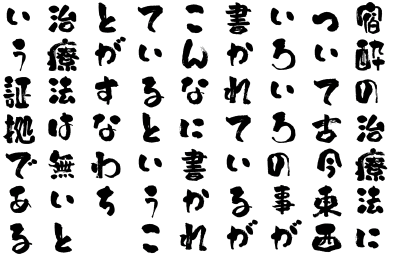 宿酔の治療法に
ついて古今東西
いろいろの事が
書かれているが
こんなに書かれ
ているというこ
とがすなわち
治療法は無いと
いう証拠である